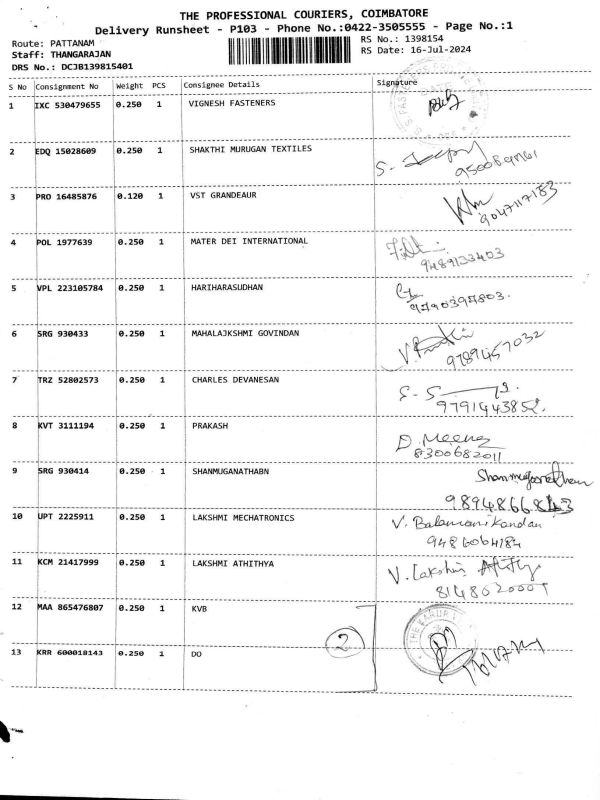 THE PROFESSIONAL COURIERS, COIMBATORE
Delivery Runsheet - P103 - Phone No.:0422-3505555 - Page No.:1
Route: PATTANAM
RS No.: 1398154
Staff: THANGARAJAN
RS Date: 16-Jul-2024
DRS No.: DCJB139815401
S No Consignment No Weight PCS Consignee Details Signature
1 IXC 530479655 0.250 1 VIGNESH FASTENERS
2 EDQ 15028609 0.250 1 SHAKTHI MURUGAN TEXTILES
3 PRO 16485876 0.120 1 VST GRANDEAUR
9047117183
4 POL 1977639 0.250 1 MATER DEI INTERNATIONAL
9489133403
5 VPL 223105784 0.250 1 HARIHARASUDHAN
9790397803.
6 SRG 930433 0.250 1 MAHALAJKSHMI GOVINDAN
9789457032
7 TRZ 52802573 0.250 1 CHARLES DEVANESAN
9791443852.
8 KVT 3111194 0.250 1 PRAKASH
D. Meena
8300682011
9 SRG 930414 0.250 1 SHANMUGANATHABN
10 UPT 2225911 0.250 1 LAKSHMI MECHATRONICS
V. Balamanikandan
9486064184
11 KCM 21417999 0.250 1 LAKSHMI ATHITHYA
V. Lakshmi
12 MAA 865476807 0.250 1 KVB
2
13 KRR 600018143 0.250 1 DO